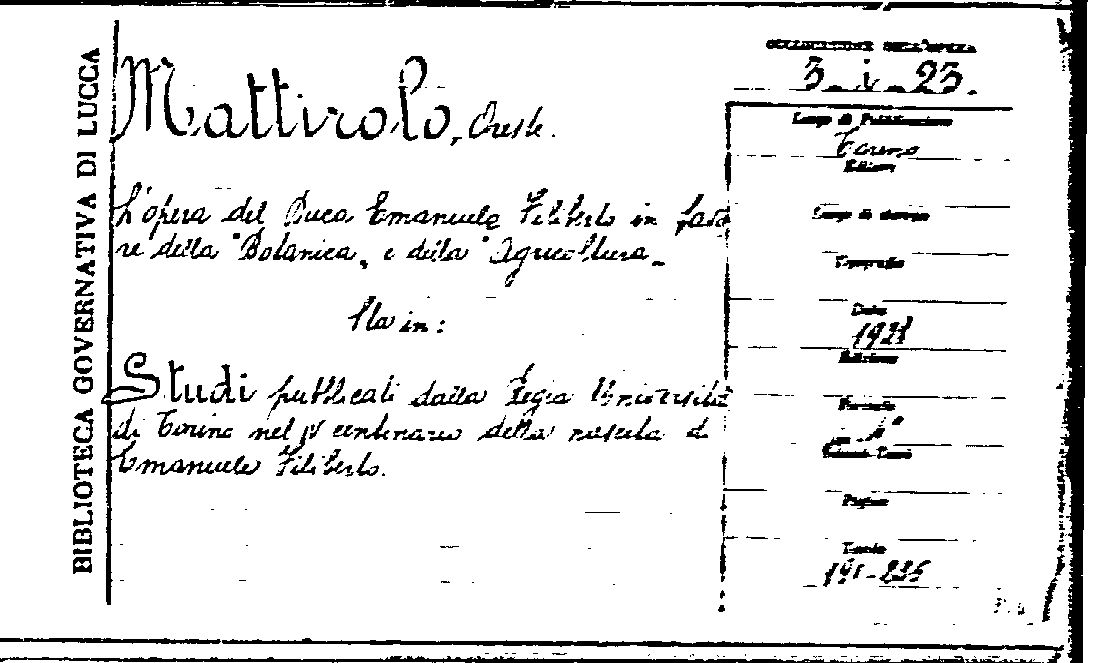 BIBLIOTECA GOVERNATIVA DI LUCCA
COLLOCAZIONE DELL'OPERA
3. i. 23.
Mattirolo, Oreste.
L'opera del Duca Emanuele Filiberto in favo
re della "Botanica" e della "Agricoltura"
Sta in:
Studi pubblicati dalla Regia Università
di Torino nel IV centenario della nascita di
Emanuele Filiberto.
Luogo di Pubblicazione
Torino
Editore
Luogo di stampa
Tipografia
Data
1928
Edizione
Formato
8°
Pagine
Tavole